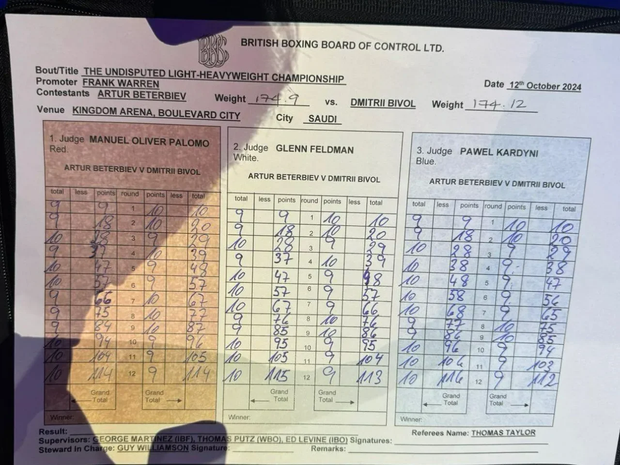 BRITISH BOXING BOARD OF CONTROL LTD.
Bout/Title THE UNDISPUTED LIGHT-HEAVYWEIGHT CHAMPIONSHIP
Promoter FRANK WARREN Date 12th October 2024
Contestants ARTUR BETERBIEV Weight 174.9 vs. DMITRII BIVOL Weight 174.12
Venue KINGDOM ARENA, BOULEVARD CITY City SAUDI
1. Judge MANUEL OLIVER PALOMO
Red.
ARTUR BETERBIEV V DMITRII BIVOL
total less points round points less total
9 9 1 10 10
9 18 2 10 20
10 3 9 29
9 4 10 39
10 47 5 9 48
10 57 6 9 57
9 66 7 10 67
9 75 8 10 77
9 84 9 10 87
10 94 10 9 96
10 104 11 9 105
10 114 12 9 114
Grand Total Grand Total
Winner:
2. Judge GLENN FELDMAN
White.
ARTUR BETERBIEV V DMITRII BIVOL
total less points round points less total
9 9 1 10 10
9 18 2 10 20
10 28 3 9 29
9 37 4 10 39
10 47 5 9 48
10 57 6 9 57
10 67 7 9 66
9 76 8 10 76
9 85 9 10 86
10 95 10 9 95
10 105 11 9 104
10 115 12 9 113
Grand Total Grand Total
Winner:
3. Judge PAWEL KARDYNI
Blue.
ARTUR BETERBIEV V DMITRII BIVOL
total less points round points less total
9 9 1 10 10
9 18 2 10 20
10 28 3 9 29
10 38 4 9 38
10 48 5 9 47
10 58 6 9 56
10 68 7 9 65
9 77 8 10 75
9 86 9 10 85
10 96 10 9 94
10 106 11 9 103
10 116 12 9 112
Grand Total Grand Total
Winner:
Result: Referees Name: THOMAS TAYLOR
Supervisors: GEORGE MARTINEZ (IBF), THOMAS PUTZ (WBO), ED LEVINE (IBO) Signatures:
Steward in Charge: GUY WILLIAMSON Signature: Remarks: